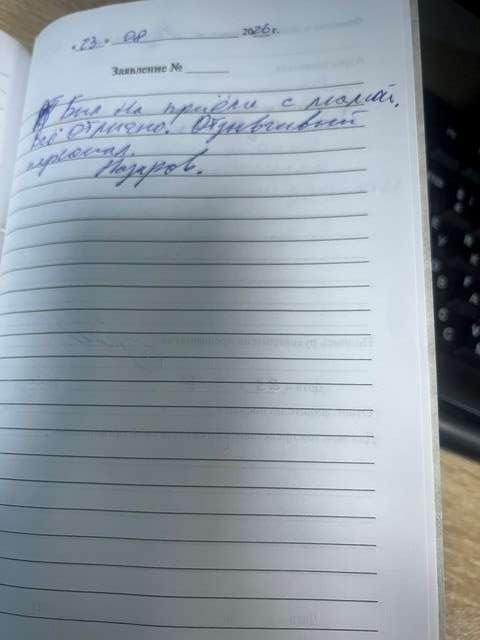 « 23 » 08 2026 г.
Заявление №
Был на приёме с мамой,
всё отлично. Отзывчивый
персонал.
Назаров.